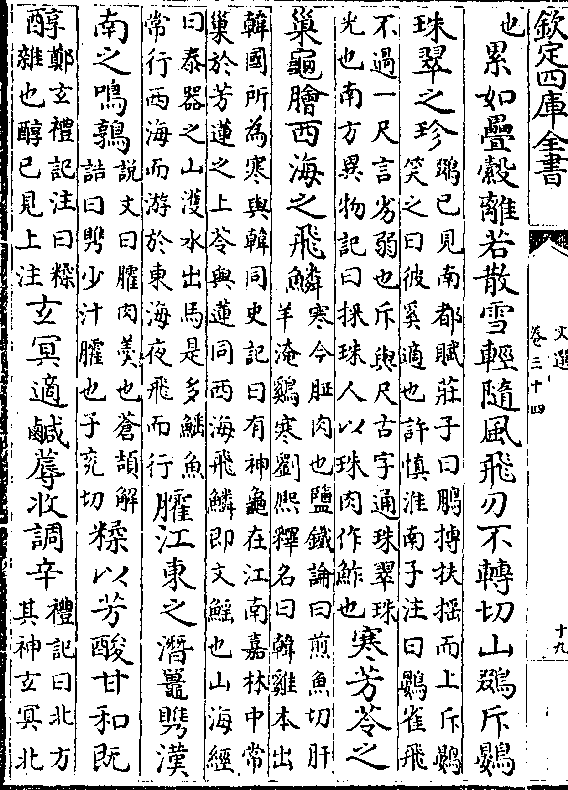 欽定四庫全書
文選
卷三十四
十九
也累如疊縠離若散雪輕隨風飛刃不轉切山鵽斥鷃
珠翠之珍
鵽已見南都賦莊子曰鵬摶扶揺而上斥鷃
笑之曰彼奚適也許慎淮南子注曰鷃雀飛
不過一尺言劣弱也斥與尺古字通珠翠珠
光也南方異物記曰採珠人以珠肉作鮓也
寒芳苓之
巢龜膾西海之飛鱗
寒今胚肉也鹽鐵論曰煎魚切肝
羊淹鷄寒劉熙釋名曰韓雞本出
韓國所為寒與韓同史記曰有神龜在江南嘉林中常
巢於芳蓮之上苓與蓮同西海飛鱗即文鰩也山海經
曰泰器之山濩水出焉是多鰩魚
常行西海而游於東海夜飛而行
臛江東之潛鼉臇漢
南之鳴鶉
說文曰臛肉羮也蒼頡解
詁曰臇少汁臛也子兖切
糅以芳酸甘和既
醇
鄭玄禮記注曰糅
雜也醇已見上注
玄冥適鹹蓐收調辛
禮記曰北方
其神玄冥北